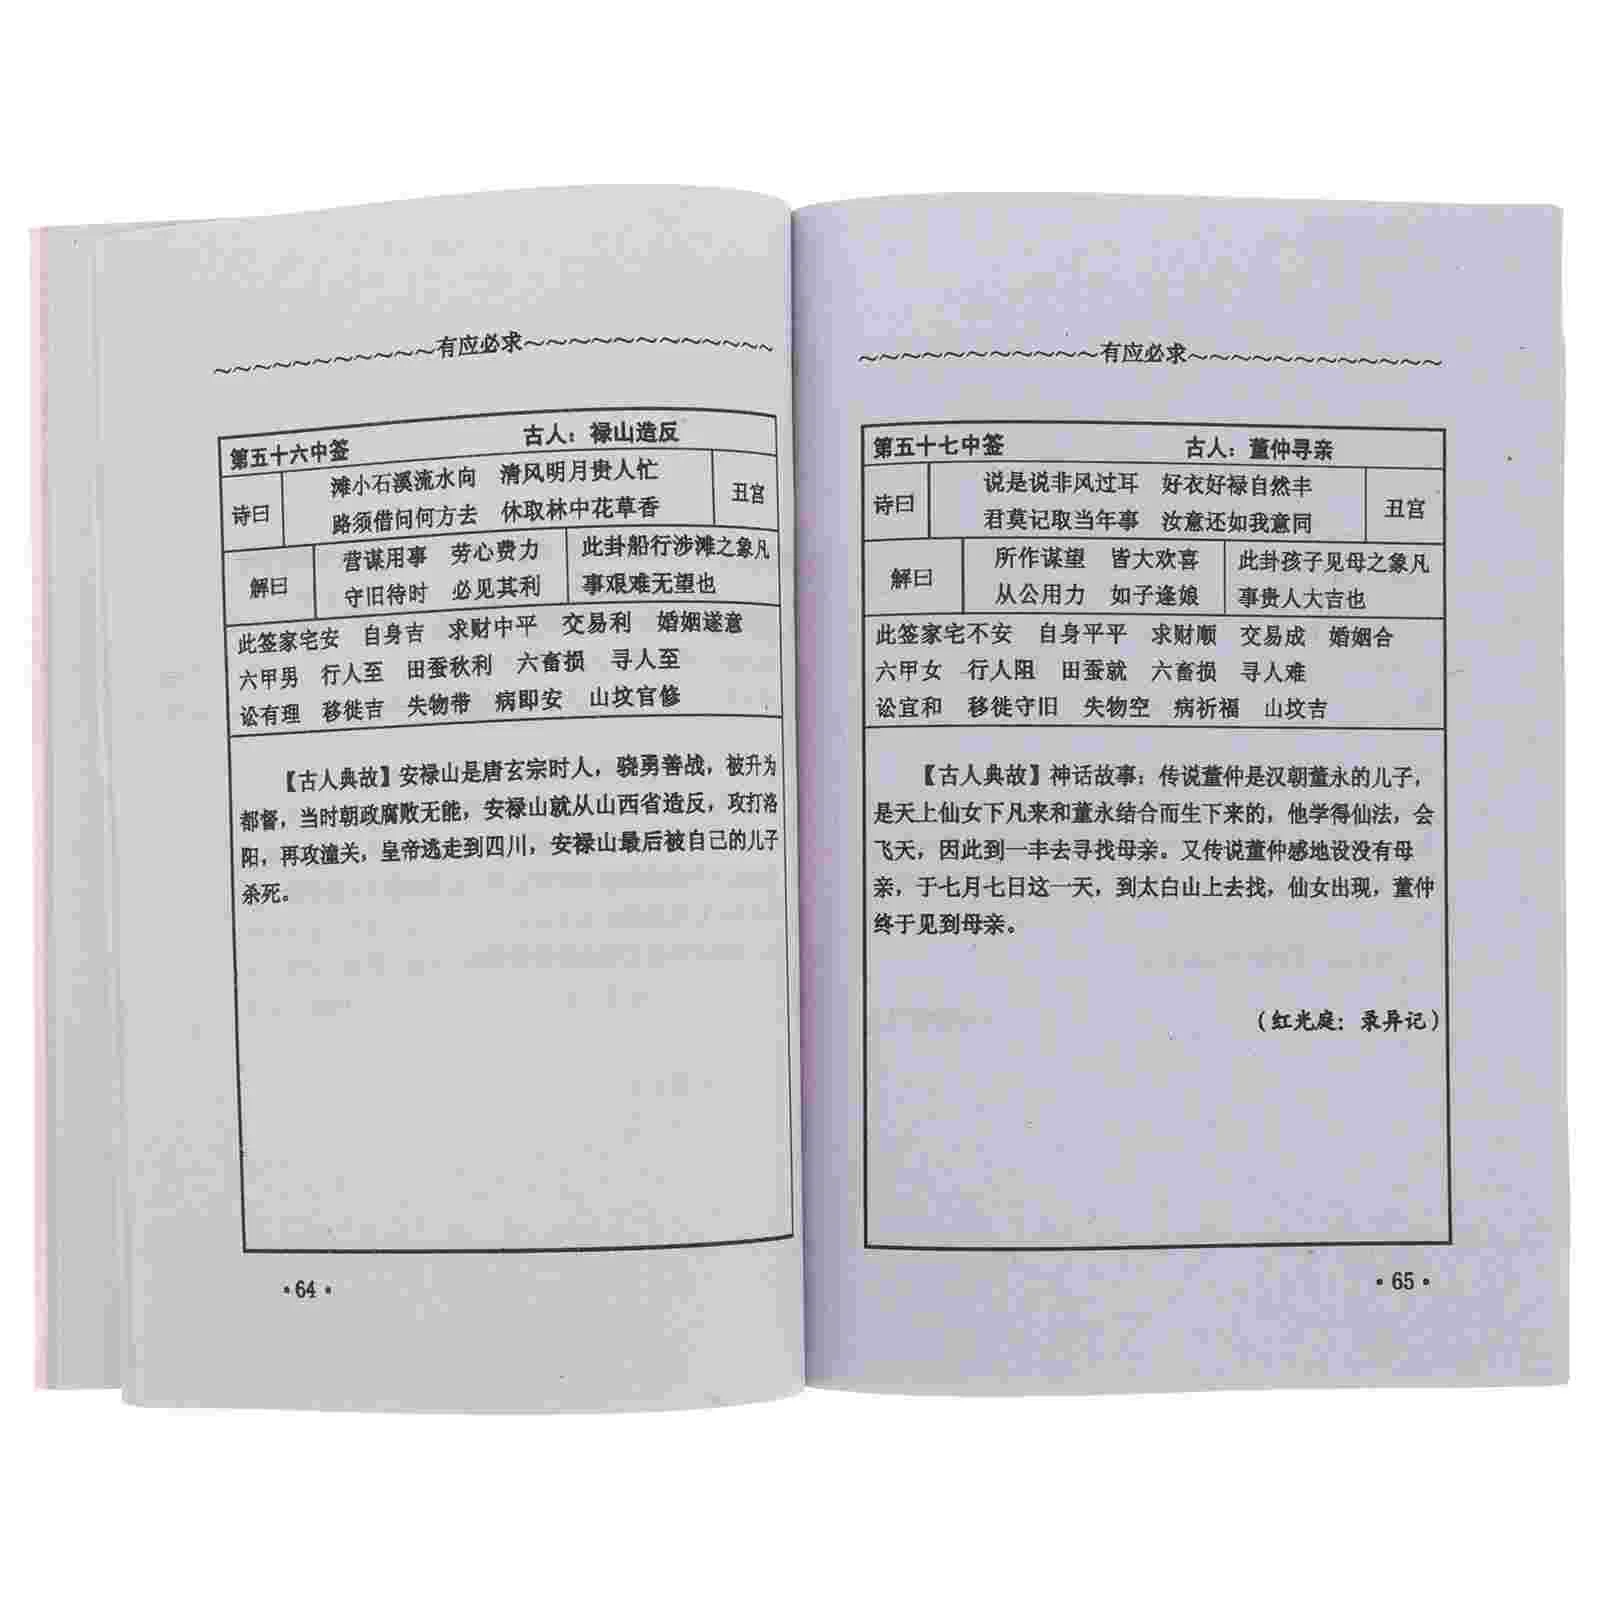 有应必求
第五十六中签 古人：禄山造反
诗曰
滩小石溪流水向 清风明月贵人忙
路须借问何方去 休取林中花草香
丑宫
解曰
营谋用事 劳心费力
守旧待时 必见其利
此卦船行涉滩之象凡
事艰难无望也
此签家宅安 自身吉 求财中平 交易利 婚姻遂意
六甲男 行人至 田蚕秋利 六畜损 寻人至
讼有理 移徙吉 失物带 病即安 山坟官修
【古人典故】安禄山是唐玄宗时人，骁勇善战，被升为
都督，当时朝政腐败无能，安禄山就从山西省造反，攻打洛
阳，再攻潼关，皇帝逃走到四川，安禄山最后被自己的儿子
杀死。
·64·
有应必求
第五十七中签 古人：董仲寻亲
诗曰
说是说非风过耳 好衣好禄自然丰
君莫记取当年事 汝意还如我意同
丑宫
解曰
所作谋望 皆大欢喜
从公用力 如子逢娘
此卦孩子见母之象凡
事贵人大吉也
此签家宅不安 自身平平 求财顺 交易成 婚姻合
六甲女 行人阻 田蚕就 六畜损 寻人难
讼宜和 移徙守旧 失物空 病祈福 山坟吉
【古人典故】神话故事：传说董仲是汉朝董永的儿子，
是天上仙女下凡来和董永结合而生下来的，他学得仙法，会
飞天，因此到一丰去寻找母亲。又传说董仲感地设没有母
亲，于七月七日这一天，到太白山上去找，仙女出现，董仲
终于见到母亲。
（红光庭：录异记）
·65·